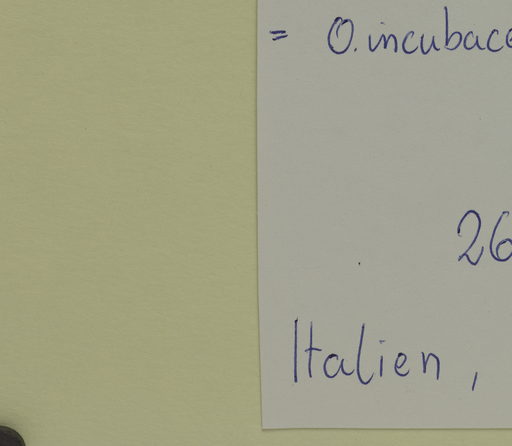 = O. incubace
26
Italien,